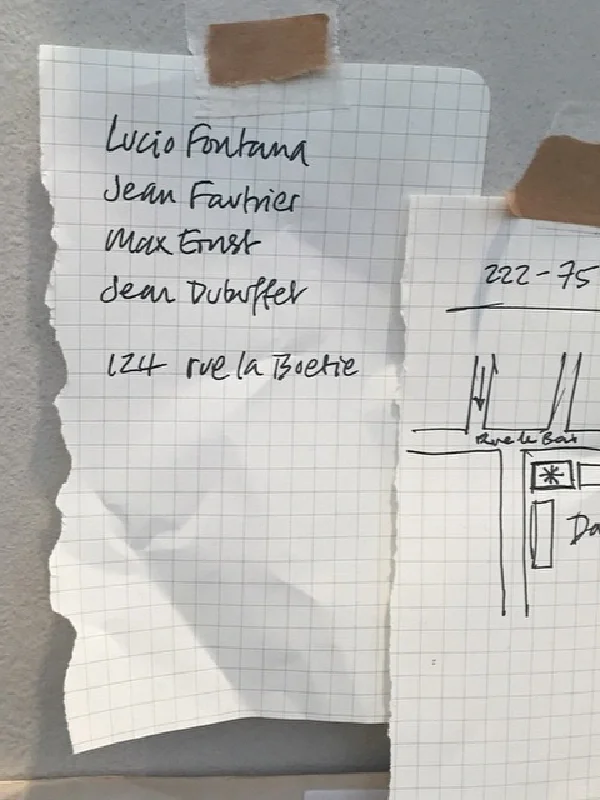 Lucio Fontana
Jean Fautrier
Max Ernst
Jean Dubuffet
124 rue la Boetie
222-75
Rue le Bar
Da